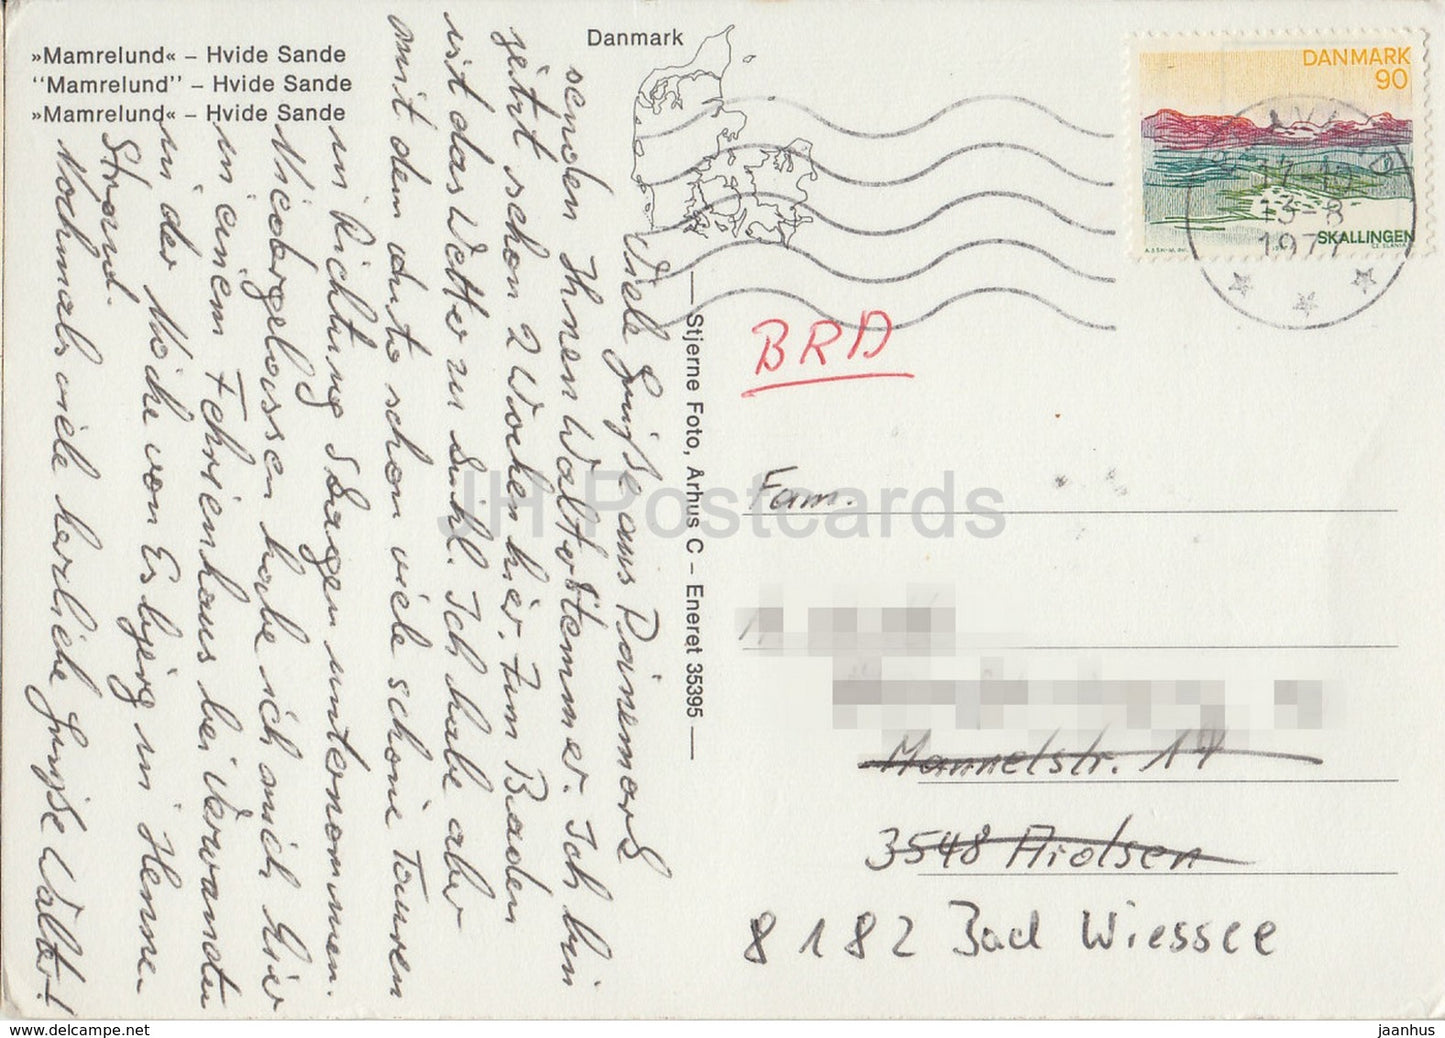 »Mamrelund« – Hvide Sande
“Mamrelund” – Hvide Sande
»Mamrelund« – Hvide Sande
Danmark
DANMARK
90
SKALLINGEN
17-19
13-8
1977
Stjerne Foto, Århus C – Eneret 35395
BRD
Viele Grüße aus Dänemark
senden Ihnen Walter Stemmer. Ich bin
jetzt schon 2 Wochen hier. Zum Baden
ist das Wetter zu kühl. Ich habe aber
mit dem Auto schon viele schöne Touren
in Richtung Skagen unternommen.
Niedergelassen habe ich mich hier
in einem Fehrienhaus bei Verwandten
in der Nähe von Esbjerg in Henne
Strand.
Nochmals viele herzliche Grüße Walter!
Fam.
Mannelstr. 17
3548 Arolsen
8182 Bad Wiessee
JH Postcards
www.delcampe.net
jaanhus